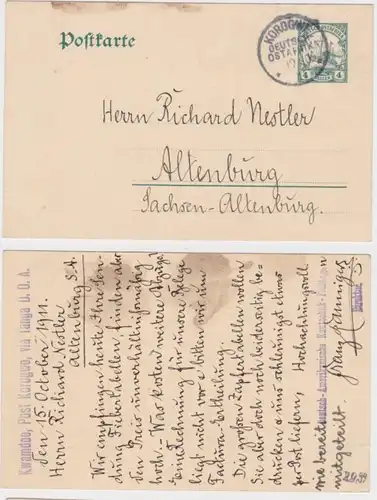 Postkarte
KOROGWE
DEUTSCH-
OSTAFRIKA
4 4
Herrn Richard Nestler
Altenburg
Sachsen-Altenburg.
Kwamdoe, Post Korogwe, via Tanga D. O. A.
den 15. October 1911.
Herrn Richard Nestler
Altenburg S.A.
Wir empfingen heute Ihre Sen-
dung Fiebertabellen, finden aber
den Preis unverhältnismässig
hoch. - Was kosten weitere Bezüge?
Eine Rechnung für unsere Belege
liegt nicht vor & bitten wir um
Factura-Ertheilung.
Die grossen Zapfertabellen wollen
Sie aber doch noch beiderseitig be-
drucken & uns schleunigst
per Post liefern,
Hochachtungsvoll
wie bereits
mitgeteilt.
29.99